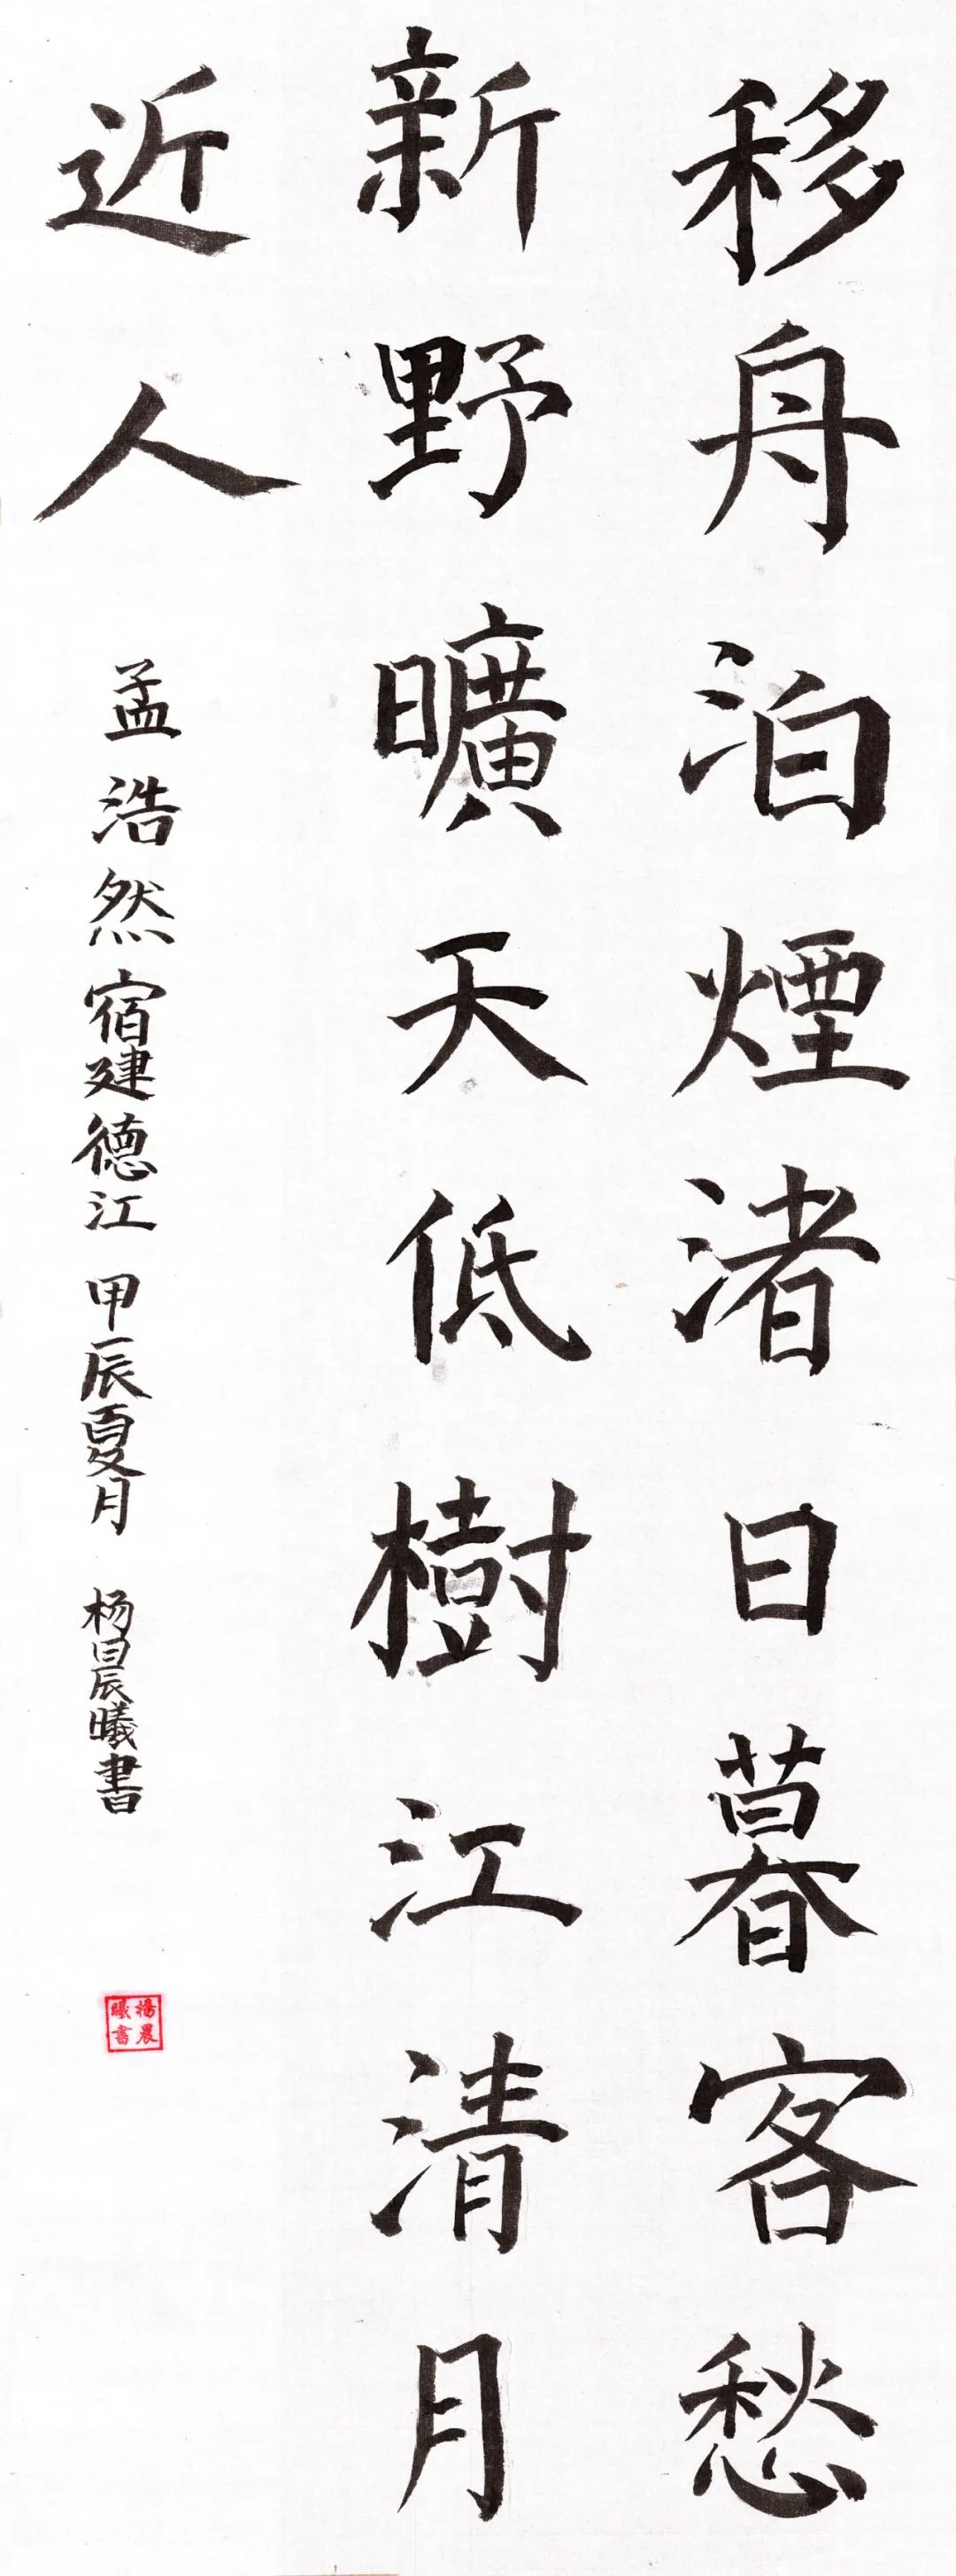 移舟泊煙渚日暮客愁
新野曠天低樹江清月
近人
孟浩然宿建德江 甲辰夏月 杨晨曦書
楊晨
曦書